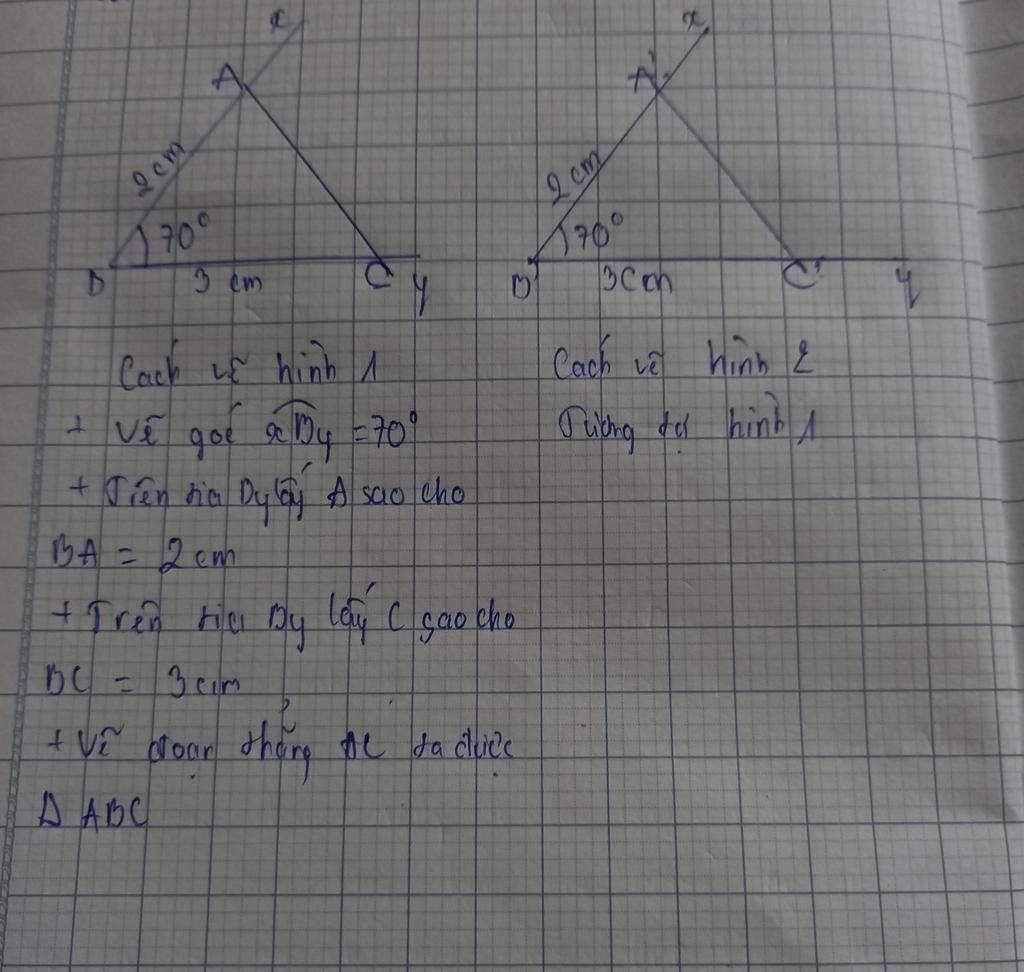 x
A
2cm
70°
B
3 cm
C
y
x
A'
2cm
70°
B'
3cm
C'
y
Cách vẽ hình 1
+ Vẽ góc xBy = 70°
+ Trên tia By lấy A sao cho
BA = 2 cm
+ Trên tia By lấy C sao cho
BC = 3cm
+ Vẽ đoạn thẳng AC ta được
Δ ABC
Cách vẽ hình 2
Tương tự hình 1